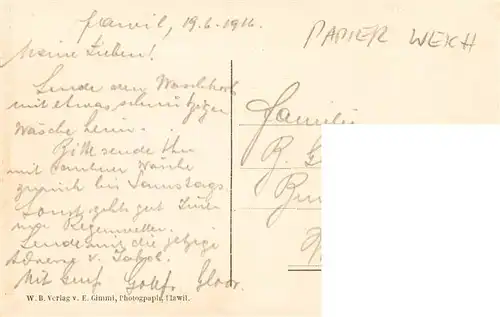 Flawil, 19.6.1916.
PAPIER WEICH
Meine Lieben!
Sende den Waschkorb
mit etwas schmutziger
Wäsche heim.
Bitte sende ihn
mit sauberer Wäsche
zurück bis Samstags.
Sonst gehts gut
nur Regenwetter.
Sende mir die jetzige
Adresse v. Jakob.
Mit Gruß Gottfr.
Familie
R.
W. B. Verlag v. E. Gimmi, Photograph, Flawil.